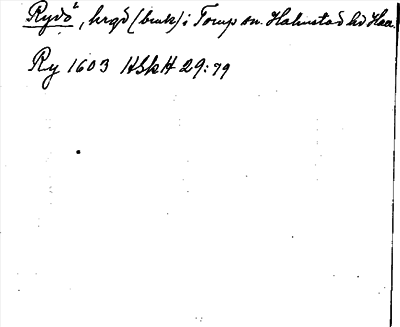 Rydö, hrgd (bruk) i Torup sn. Halmstad hd Hall.
Ry 1603 HSkH 29:79